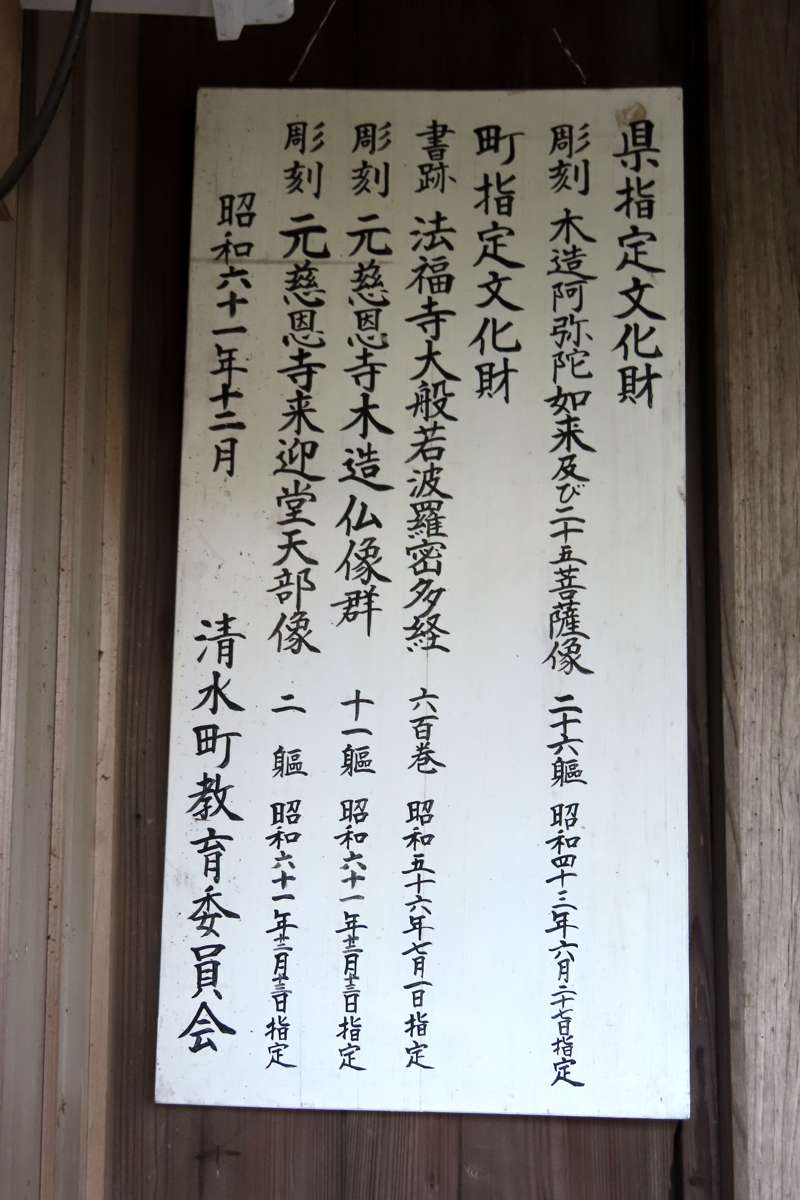 県指定文化財
彫刻 木造阿弥陀如来及び二十五菩薩像 二十六軀 昭和四十三年六月二十七日指定
町指定文化財
書跡 法福寺大般若波羅密多経 六百巻 昭和五十六年七月一日指定
彫刻 元慈恩寺木造仏像群 十一軀 昭和六十一年十二月十三日指定
彫刻 元慈恩寺来迎堂天部像 二軀 昭和六十一年十二月十三日指定
昭和六十一年十二月 清水町教育委員会